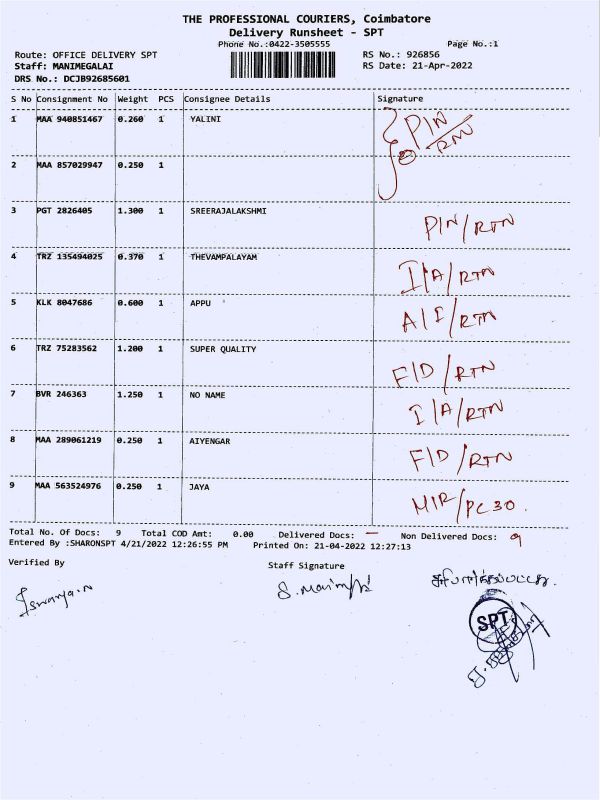 THE PROFESSIONAL COURIERS, Coimbatore
Delivery Runsheet - SPT
Phone No.:0422-3505555 Page No.:1
Route: OFFICE DELIVERY SPT RS No.: 926856
Staff: MANIMEGALAI RS Date: 21-Apr-2022
DRS No.: DCJB92685601
S No Consignment No Weight PCS Consignee Details Signature
1 MAA 940851467 0.260 1 YALINI PIN/RTN
2 MAA 857029947 0.250 1
3 PGT 2826405 1.300 1 SREERAJALAKSHMI PIN/RTN
4 TRZ 135494025 0.370 1 THEVAMPALAYAM I/A/RTN
5 KLK 8047686 0.600 1 APPU A/I/RTN
6 TRZ 75283562 1.200 1 SUPER QUALITY F/D/RTN
7 BVR 246363 1.250 1 NO NAME I/A/RTN
8 MAA 289061219 0.250 1 AIYENGAR F/D/RTN
9 MAA 563524976 0.250 1 JAYA MIR/PC30.
Total No. Of Docs: 9 Total COD Amt: 0.00 Delivered Docs: — Non Delivered Docs: 9
Entered By :SHARONSPT 4/21/2022 12:26:55 PM Printed On: 21-04-2022 12:27:13
Verified By Staff Signature
சரிபார்க்கப்பட்டது.
SPT